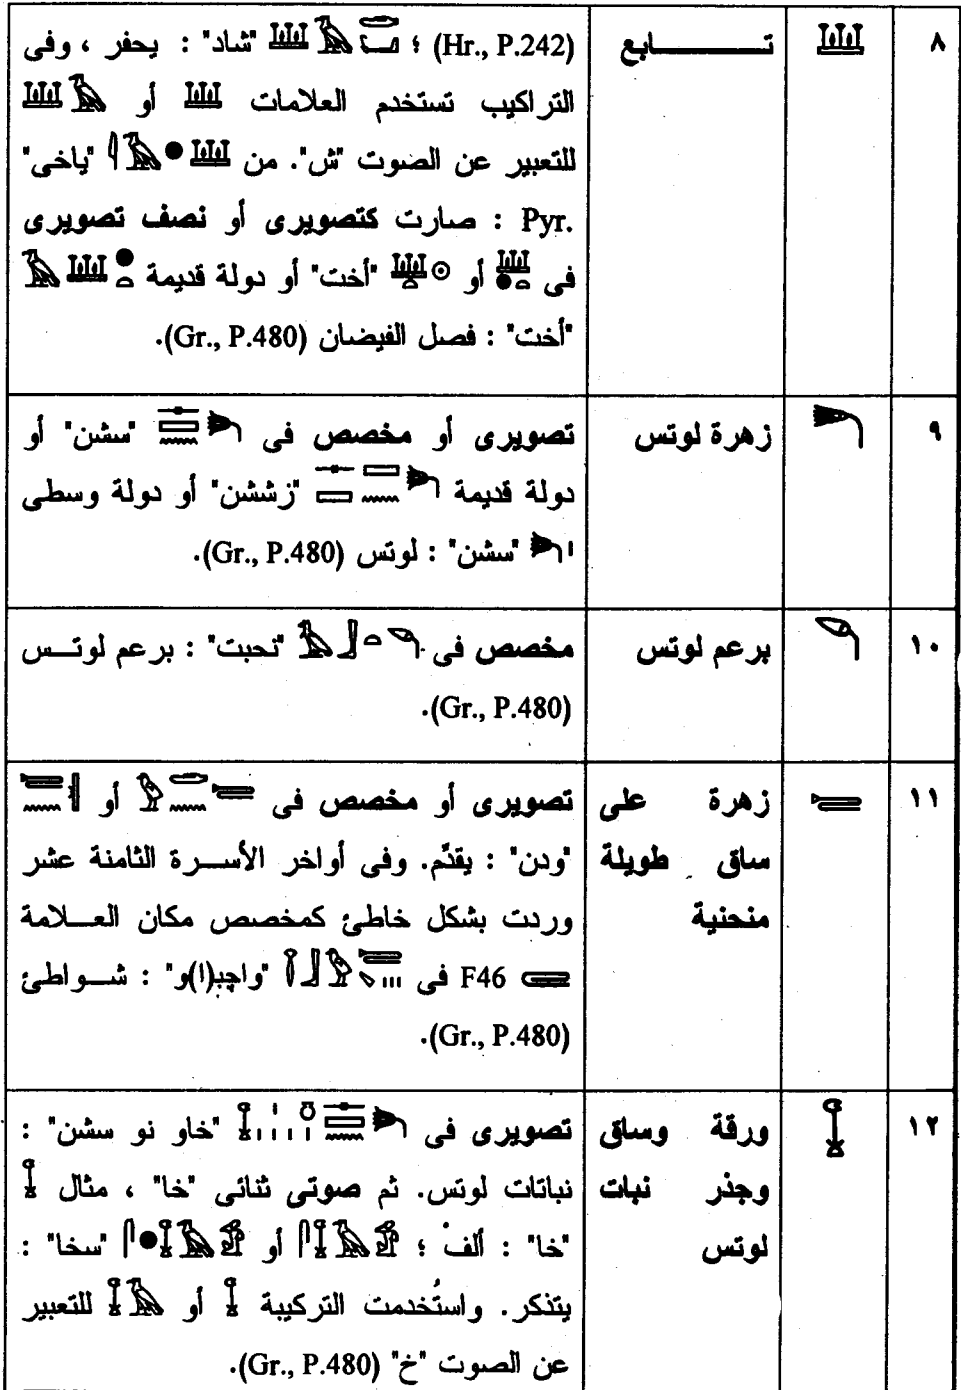 ٨ تـــــابع (Hr., P.242) ؛ 𓈙𓂧 "شاد" : يحفر ، وفى
التراكيب تستخدم العلامات 𓆷 أو 𓆷𓄿
للتعبير عن الصوت "ش". من "ياخى"
Pyr. : صارت كتصويرى أو نصف تصويرى
فى أو "أخت" أو دولة قديمة
"أخت" : فصل الفيضان (Gr., P.480).
٩ زهرة لوتس تصويرى أو مخصص فى "سشن" أو
دولة قديمة "زششن" أو دولة وسطى
"سشن" : لوتس (Gr., P.480).
١٠ برعم لوتس مخصص فى "نحبت" : برعم لوتــس
(Gr., P.480).
١١ زهرة على تصويرى أو مخصص فى أو
ساق طويلة "ودن" : يقدّم. وفى أواخر الأســرة الثامنة عشر
منحنية وردت بشكل خاطئ كمخصص مكان العــلامة
F46 فى "واچبـ(ا)و" : شــواطئ
(Gr., P.480).
١٢ ورقة وساق تصويرى فى "خاو نو سشن" :
وجذر نبات نباتات لوتس. ثم صوتى ثنائى "خا" ، مثال 𓆼
لوتس "خا" : ألف ؛ أو "سخا" :
يتذكر. واستُخدمت التركيبة 𓆼 أو 𓆼𓄿 للتعبير
عن الصوت "خ" (Gr., P.480).